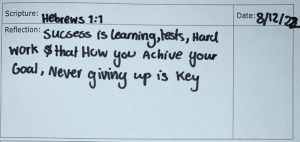 Scripture: Hebrews 1:1 Date: 8/12/22
Reflection: Sucsess is learning, tests, Hard
work $ that How you Achive your
Goal, Never giving up is Key